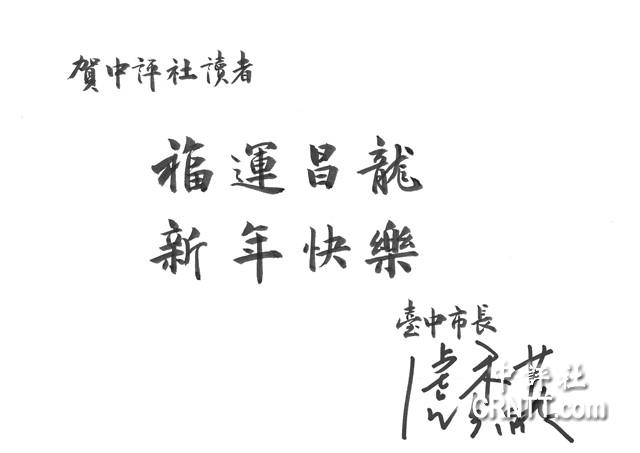 賀中評社讀者
福運昌龍
新年快樂
臺中市長
盧秀燕
中評社
CRNTT.com